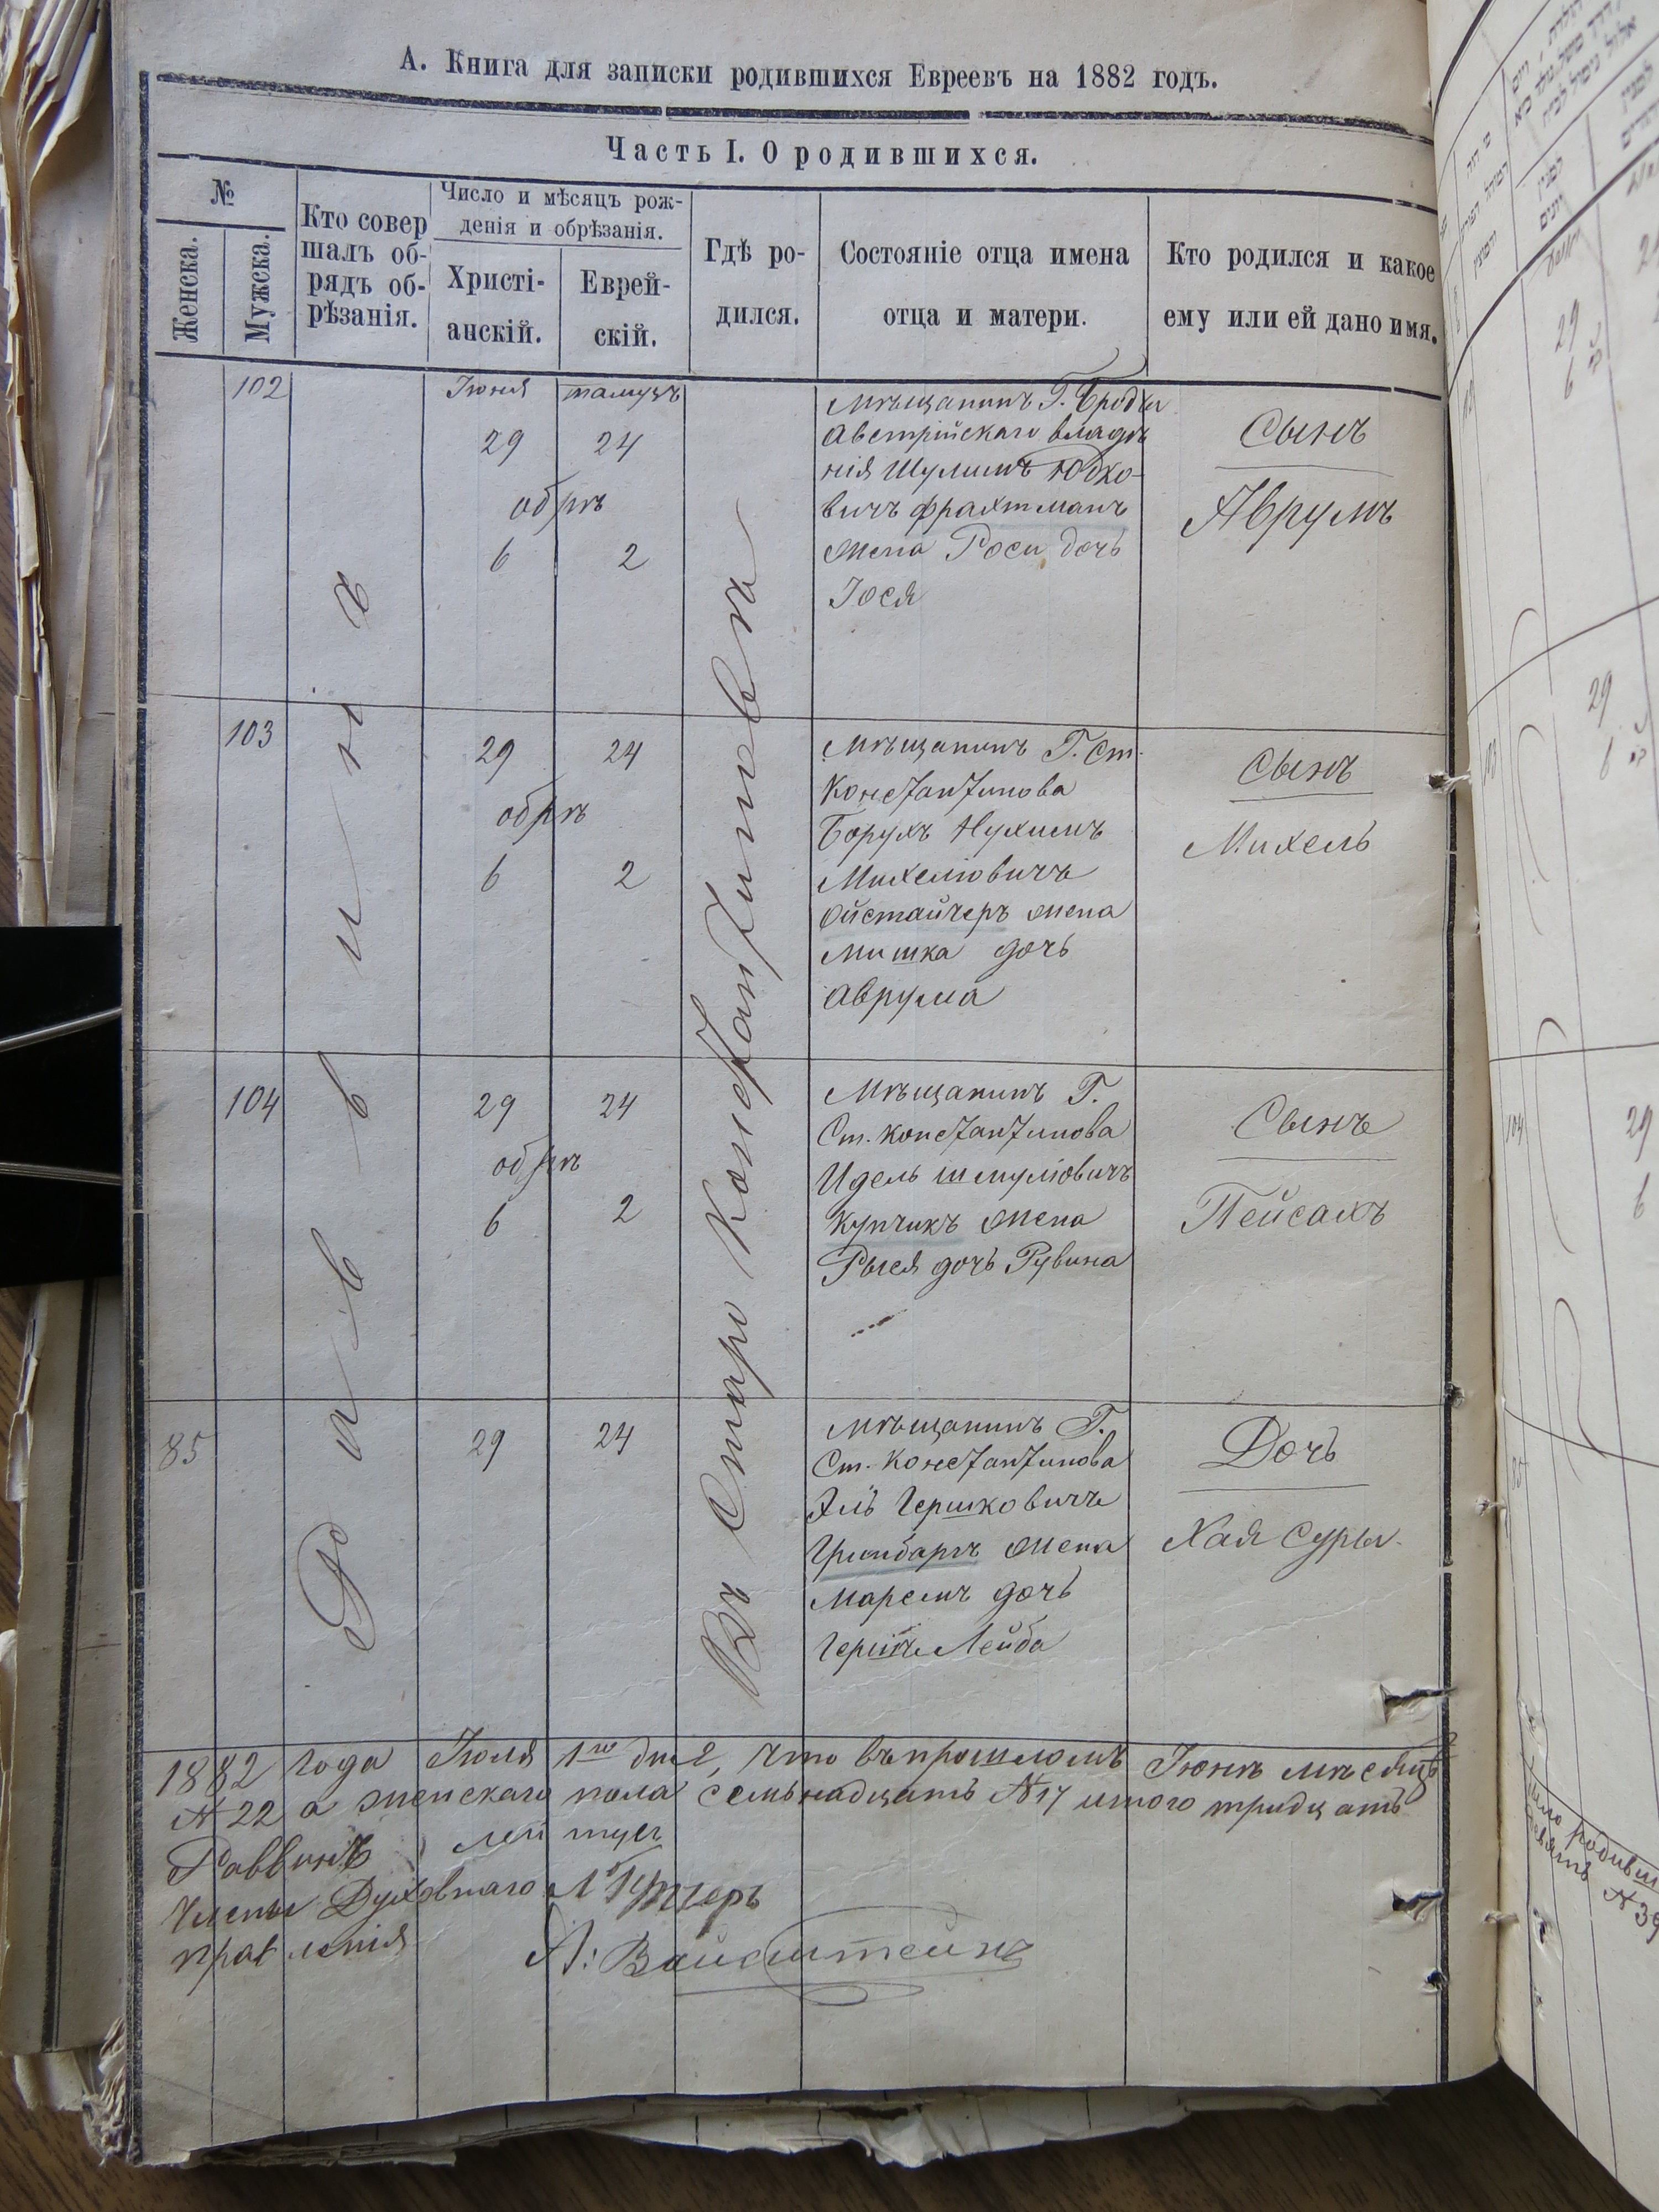 А. Книга для записки родившихся Евреевъ на 1882 годъ.
Часть I. О родившихся.
№
Женска.
Мужска.
Кто совер
шалъ об-
рядъ об-
рѣзанія.
Число и мѣсяцъ рож-
денія и обрѣзанія.
Христі-
анскій.
Еврей-
скій.
Гдѣ ро-
дился.
Состояніе отца имена
отца и матери.
Кто родился и какое
ему или ей дано имя.
Раввинъ
Въ Старо Константиновѣ
102
Іюня
тамузъ
29 24
обрѣ
6 2
Мѣщанинъ Г. Броды
Австрійскаго владѣ
нія Шулимъ Юдко-
вичъ Фрахтманъ
жена Роси дочь
Іося
Сынъ
Аврумъ
103
29 24
обрѣ
6 2
Мѣщанинъ Г. Ст.
Константинова
Борухъ Нухимъ
Михеліовичъ
Ойстайчеръ жена
Мишка дочь
Аврума
Сынъ
Михель
104
29 24
обрѣ
6 2
Мѣщанинъ Г.
Ст. Константинова
Идель Шмуліовичъ
Купчикъ жена
Рыся дочь Рувина
Сынъ
Пейсахъ
85
29 24
Мѣщанинъ Г.
Ст. Константинова
Эль Гершковичъ
жена
Маремъ дочь
Гершъ Лейба
Дочь
Хая Суры
1882 года Іюля 1го дня, что въ прошломъ Іюнѣ мѣсяцѣ
№ 22 а женскаго пола семьнадцать № 17 итого тридцать
Раввинъ
Члены Духовнаго
правленія
А: Вайсштейнъ
29
6
29
6
104
29
6
№ 39